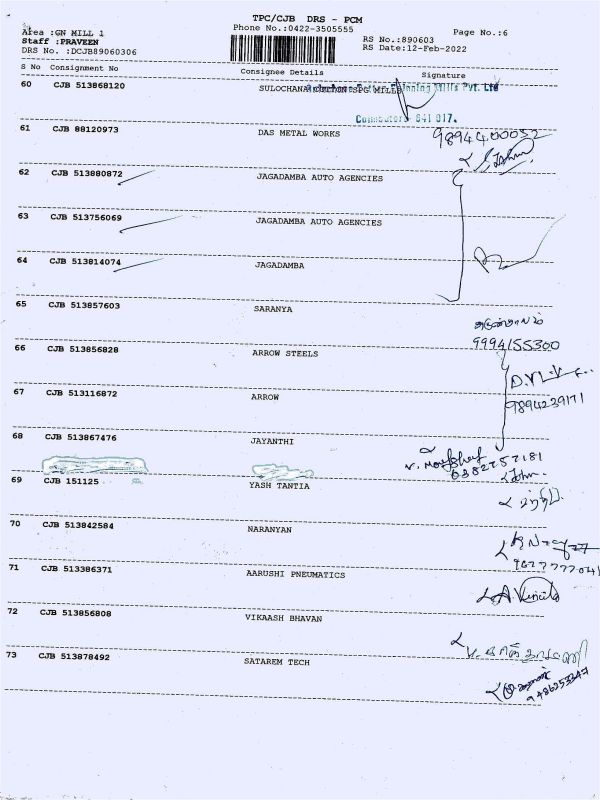 TPC/CJB DRS - PCM
Phone No.:0422-3505555
Page No.:6
Area :GN MILL 1
Staff :PRAVEEN
DRS No. :DCJB89060306
RS No.:890603
RS Date:12-Feb-2022
S No Consignment No Consignee Details Signature
60 CJB 513868120 SULOCHANA COTTON SPG MILLS Mills Pvt. Ltd
Coimbatore 641 017.
61 CJB 88120973 DAS METAL WORKS
62 CJB 513880872 JAGADAMBA AUTO AGENCIES
63 CJB 513756069 JAGADAMBA AUTO AGENCIES
64 CJB 513814074 JAGADAMBA
65 CJB 513857603 SARANYA
9994155300
66 CJB 513856828 ARROW STEELS
67 CJB 513116872 ARROW
9894239171
68 CJB 513867476 JAYANTHI
69 CJB 151125 YASH TANTIA
70 CJB 513842584 NARANYAN
71 CJB 513386371 AARUSHI PNEUMATICS
72 CJB 513856808 VIKAASH BHAVAN
73 CJB 513878492 SATAREM TECH